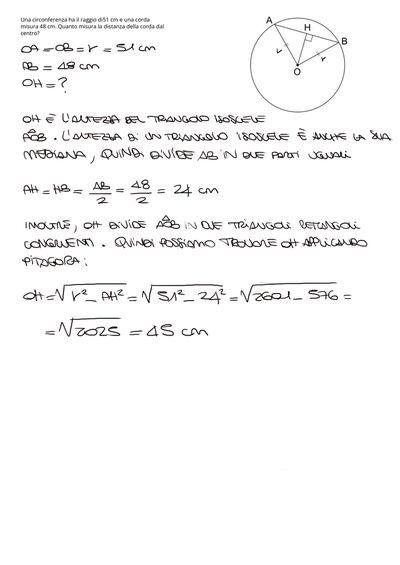 Una circonferenza ha il raggio di51 cm e una corda
misura 48 cm. Quanto misura la distanza della corda dal
centro?
OA = OB = r = 51 cm
AB = 48 cm
OH = ?
A
H
B
r
r
O
OH È L'ALTEZZA DEL TRIANGOLO ISOSCELE
AÔB. L'ALTEZZA DI UN TRIANGOLO ISOSCELE È ANCHE LA SUA
MEDIANA, QUINDI DIVIDE AB IN DUE PARTI UGUALI
AH = HB = AB/2 = 48/2 = 24 cm
INOLTRE, OH DIVIDE AÔB IN DUE TRIANGOLI RETTANGOLI
CONGRUENTI. QUINDI POSSIAMO TROVARE OH APPLICANDO
PITAGORA:
OH = √r² - AH² = √51² - 24² = √2601 - 576 =
= √2025 = 45 cm